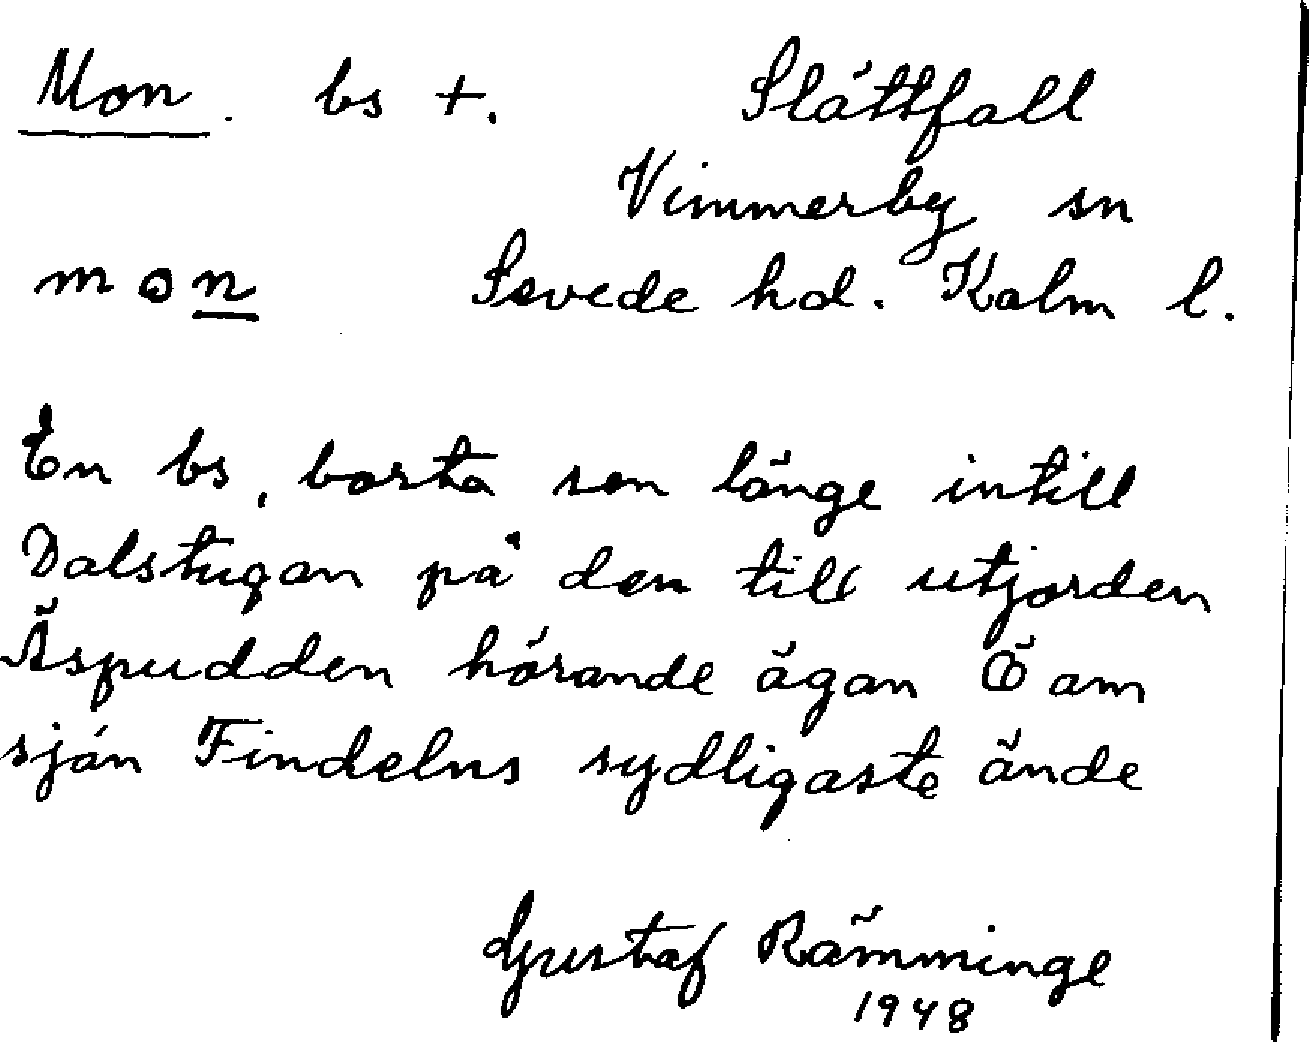 Mon. bs +. Slättfall
Vimmerby sn
mon Sevede hd. Kalm l.
En bs, borta sen länge intill
Dalstugan på den till utjorden
Äspudden hörande ägan Ö om
sjön Findelns sydligaste ände
Gustaf Rämminge
1948